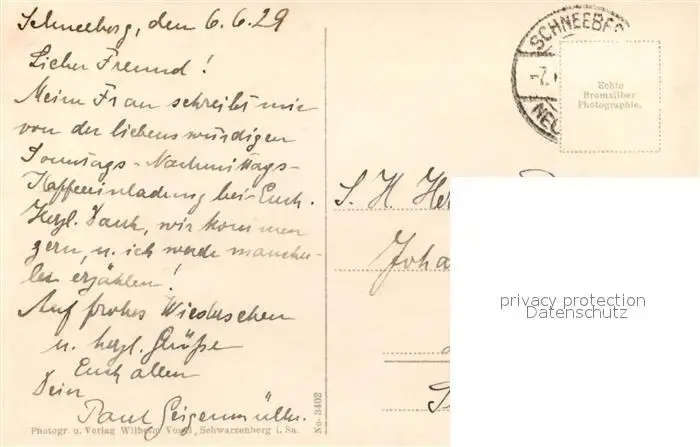 Schneeberg, den 6.6.29
Lieber Freund!
Meine Frau schreibt mir
von der liebenswürdigen
Sonntags-Nachmittags-
Kaffeeeinladung bei Euch.
Herzl. Dank, wir kommen
gern, u. ich werde mancher-
lei erzählen!
Auf frohes Wiedersehen
u. herzl. Grüße
Euch allen
Dein
Paul Geigenmüller.
Photogr. u. Verlag Wilhelm Vogel, Schwarzenberg i. Sa.
No. 3402
SCHNEEBE
-7.
NEU
Echte
Bromsilber
Photographie.
S. H. He
Joha
privacy protection
Datenschutz